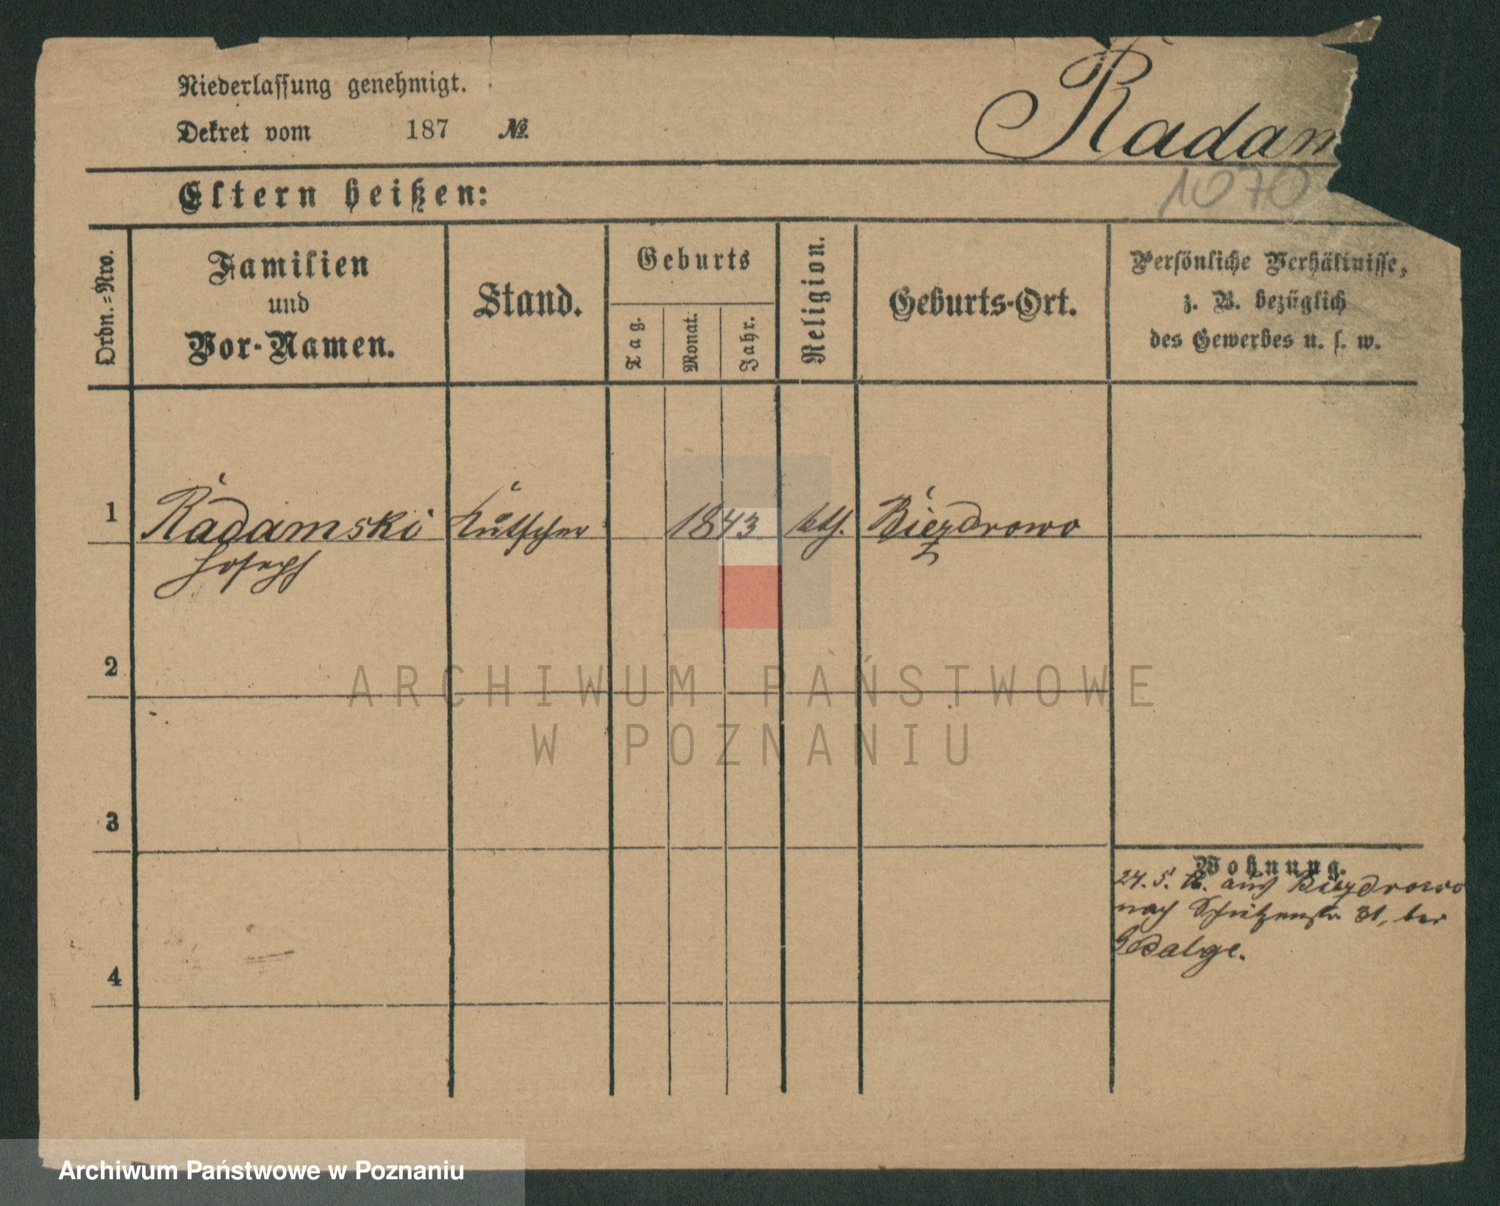 Niederlassung genehmigt.
Dekret vom 187 No.
Radam
1070
Eltern heißen:
Ordn.=Nro.
Familien
und
Vor-Namen.
Stand.
Geburts
Tag.
Monat.
Jahr.
Religion.
Geburts-Ort.
Persönliche Verhältnisse,
z. B. bezüglich
des Gewerbes u. s. w.
1 Radamski Kutscher 1843 kth. Biezdrowo
Joseph
2
3
4
Wohnung.
24. 5. aus Biezdrowo
nach Schützenstr 31, bei
ARCHIWUM PAŃSTWOWE
W POZNANIU
Archiwum Państwowe w Poznaniu